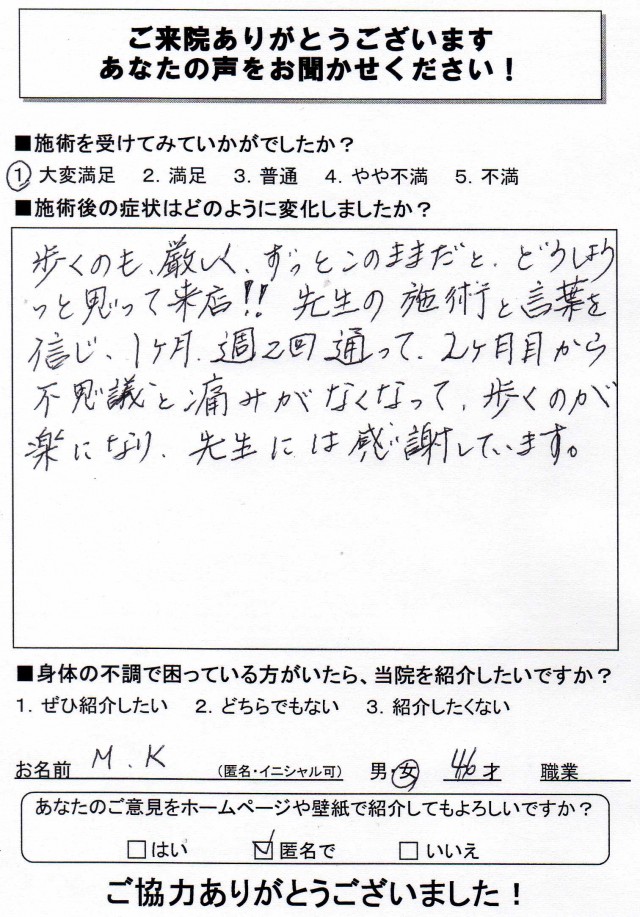 ご来院ありがとうございます
あなたの声をお聞かせください！
■施術を受けてみていかがでしたか？
1 大変満足 2. 満足 3. 普通 4. やや不満 5. 不満
■施術後の症状はどのように変化しましたか？
歩くのも、厳しく、ずっとこのままだと、どうしよう
っと思って来店!! 先生の施術と言葉を
信じ、1ヶ月、週2回通って、2ヶ月目から
不思議と痛みがなくなって、歩くのが
楽になり、先生には感謝しています。
■身体の不調で困っている方がいたら、当院を紹介したいですか？
1. ぜひ紹介したい 2. どちらでもない 3. 紹介したくない
お名前 M.K （匿名・イニシャル可） 男・女 46才 職業
あなたのご意見をホームページや壁紙で紹介してもよろしいですか？
□はい ☑匿名で □いいえ
ご協力ありがとうございました！